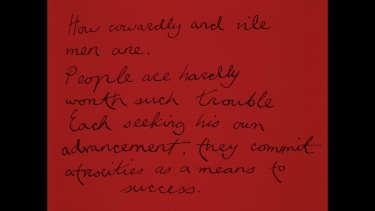 How cowardly and vile
men are.
People are hardly
worth such trouble
Each seeking his own
advancement, they commit
atrocities as a means to
success.